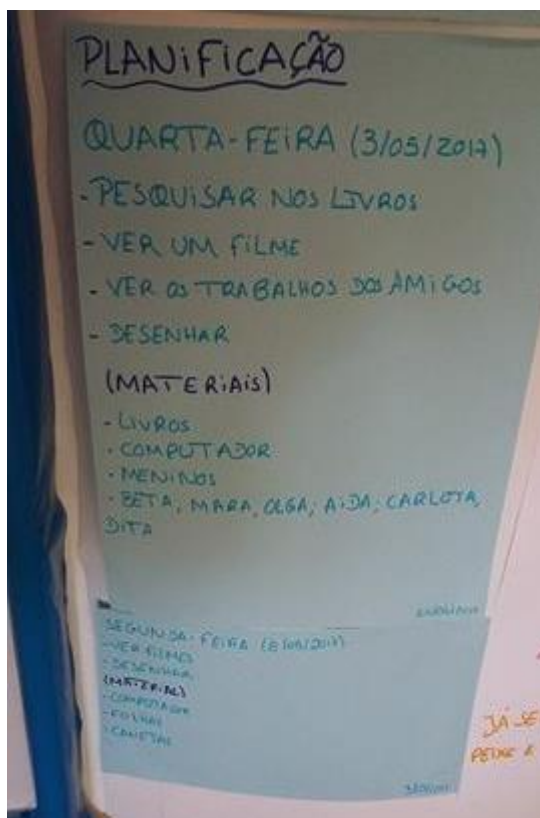 PLANIFICAÇÃO
QUARTA-FEIRA (3/05/2017)
- PESQUISAR NOS LIVROS
- VER UM FILME
- VER OS TRABALHOS DOS AMIGOS
- DESENHAR
(MATERIAIS)
- LIVROS
- COMPUTADOR
- MENINOS
- BETA, MARA, OLGA, AIDA, CARLOTA,
DITA
SEGUNDA-FEIRA (8/05/2017)
- VER FILMES
- DESENHAR
(MATERIAL)
- COMPUTADOR
- FOLHAS
- CANETAS
JÁ SE
PEIXE